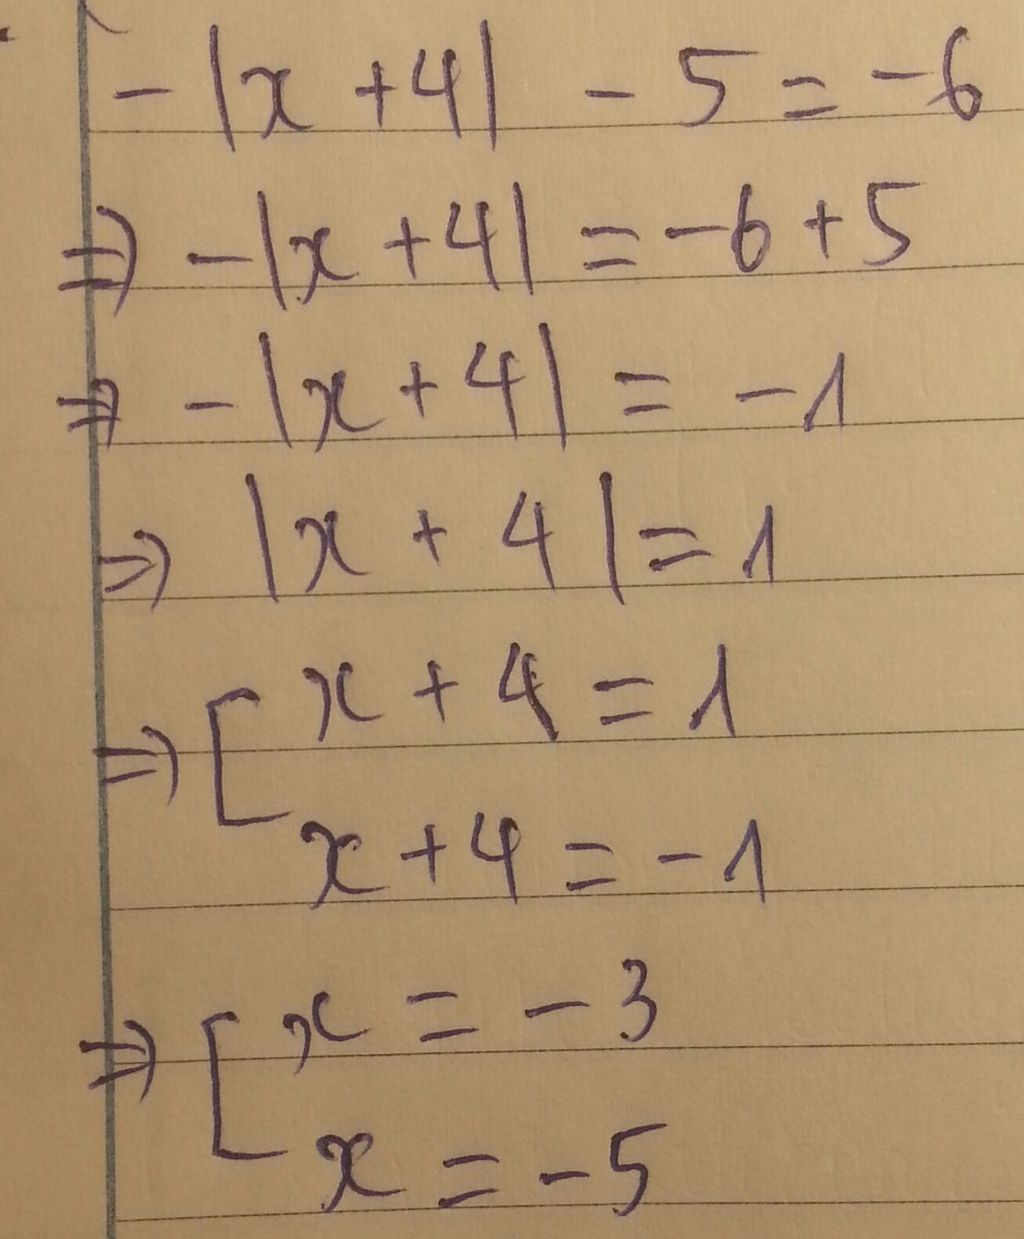 -|x + 4| - 5 = -6
⇒ -|x + 4| = -6 + 5
⇒ -|x + 4| = -1
⇒ |x + 4| = 1
⇒ [ x + 4 = 1
x + 4 = -1
⇒ [ x = -3
x = -5